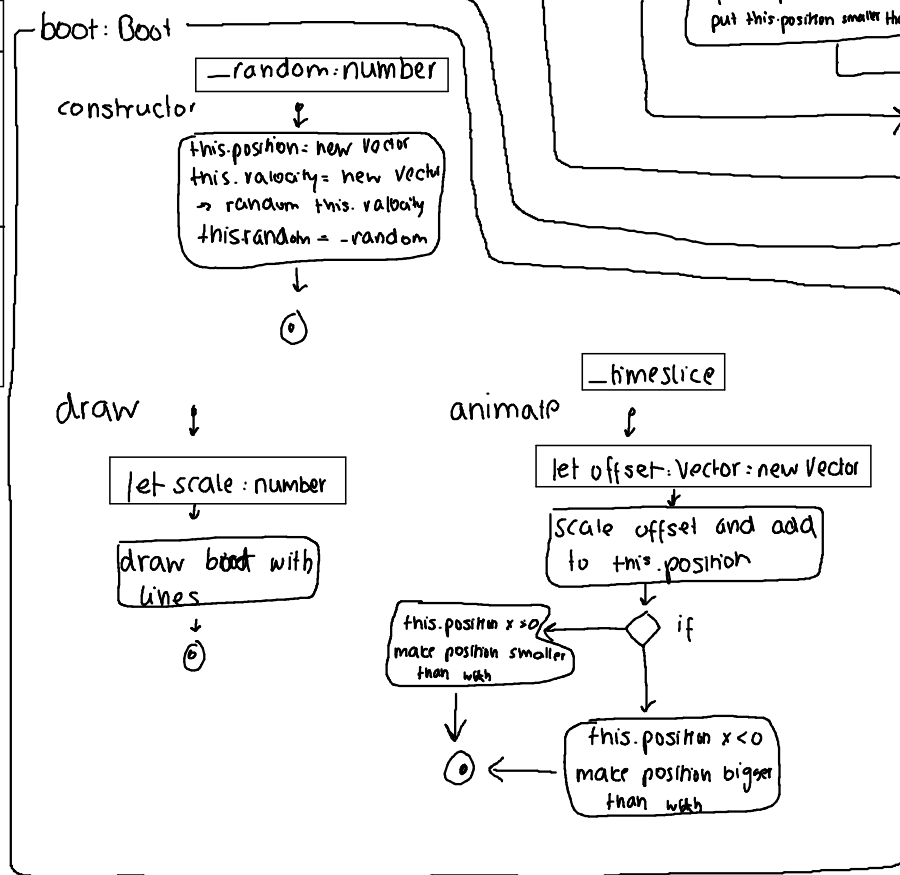 put this.position smaller
boot: Boot
_random:number
constructor
this.position= new vector
this.valocity= new vector
→ random this. valocity
thisrandom = -random
_timeslice
draw
animate
let scale : number
let offset: Vector: new Vector
draw boot with
lines
scale offset and add
to this.position
if
this.position x >0
make position smaller
than with
this.position x <0
make position bigger
than with